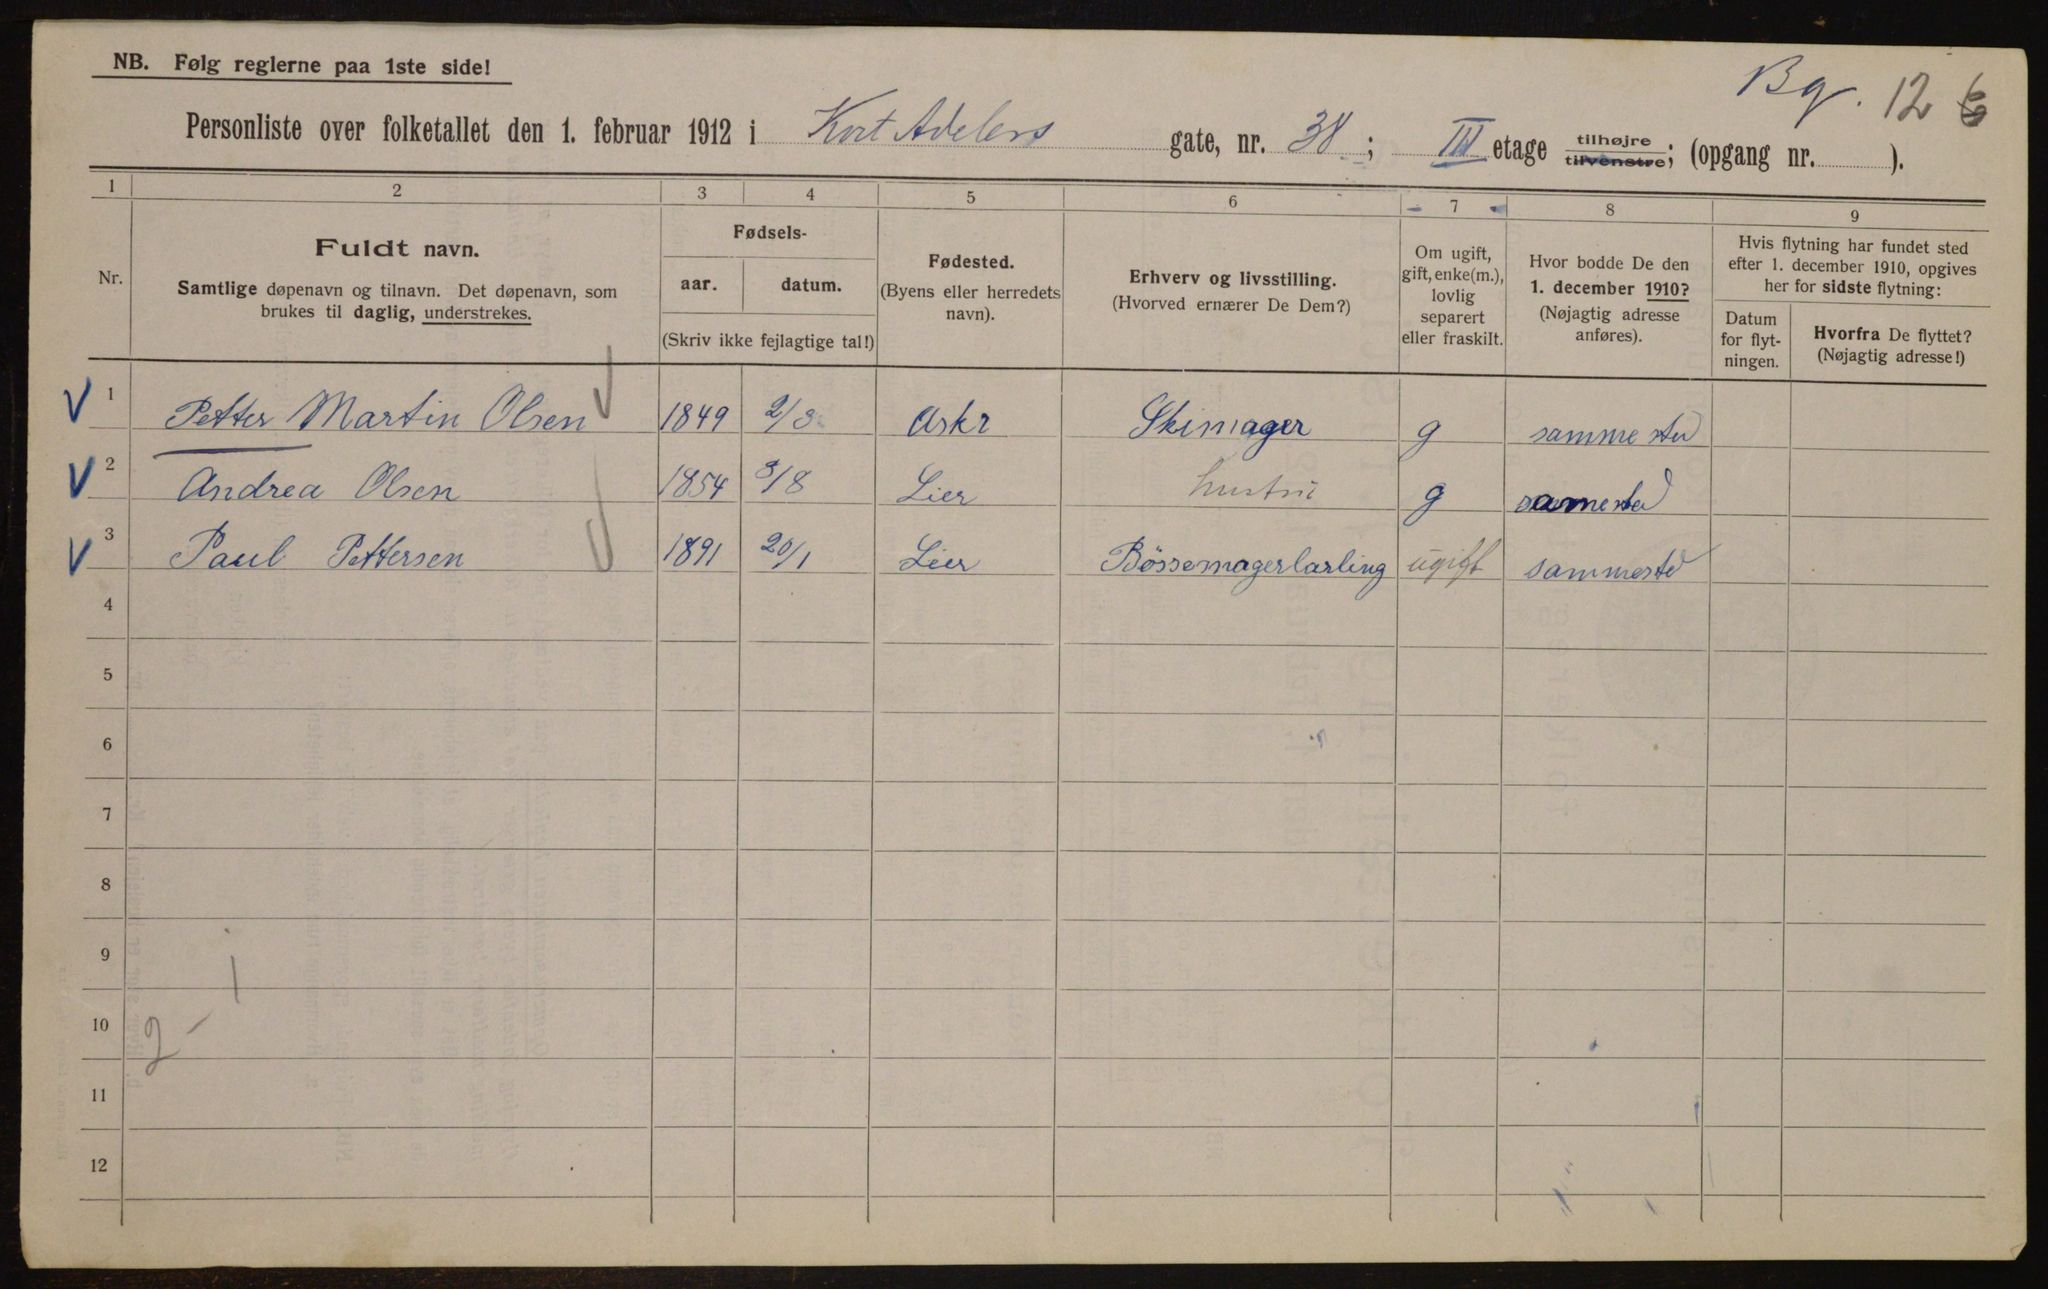 NB. Følg reglerne paa 1ste side!
Bg. 12
Personliste over folketallet den 1. februar 1912 i Kort Adelers gate, nr. 38; III etage tilhøjre tilvenstre; (opgang nr. ).
1 2 3 4 5 6 7 8 9
Nr.
Fuldt navn.
Samtlige døpenavn og tilnavn. Det døpenavn, som
brukes til daglig, understrekes.
Fødsels-
aar. datum.
(Skriv ikke fejlagtige tal!)
Fødested.
(Byens eller herredets
navn).
Erhverv og livsstilling.
(Hvorved ernærer De Dem?)
Om ugift,
gift, enke(m.),
lovlig
separert
eller fraskilt.
Hvor bodde De den
1. december 1910?
(Nøjagtig adresse
anføres).
Hvis flytning har fundet sted
efter 1. december 1910, opgives
her for sidste flytning:
Datum
for flyt-
ningen.
Hvorfra De flyttet?
(Nøjagtig adresse!)
1 Petter Martin Olsen 1849 2/3 Askr Skimager g samme sted
2 Andrea Olsen 1854 3/8 Lier hustru g samme sted
3 Paul Pettersen 1891 20/1 Lier Bössemagerlarling ugift sammested
4
5
6
7
8
9
10
11
12
2 - 1